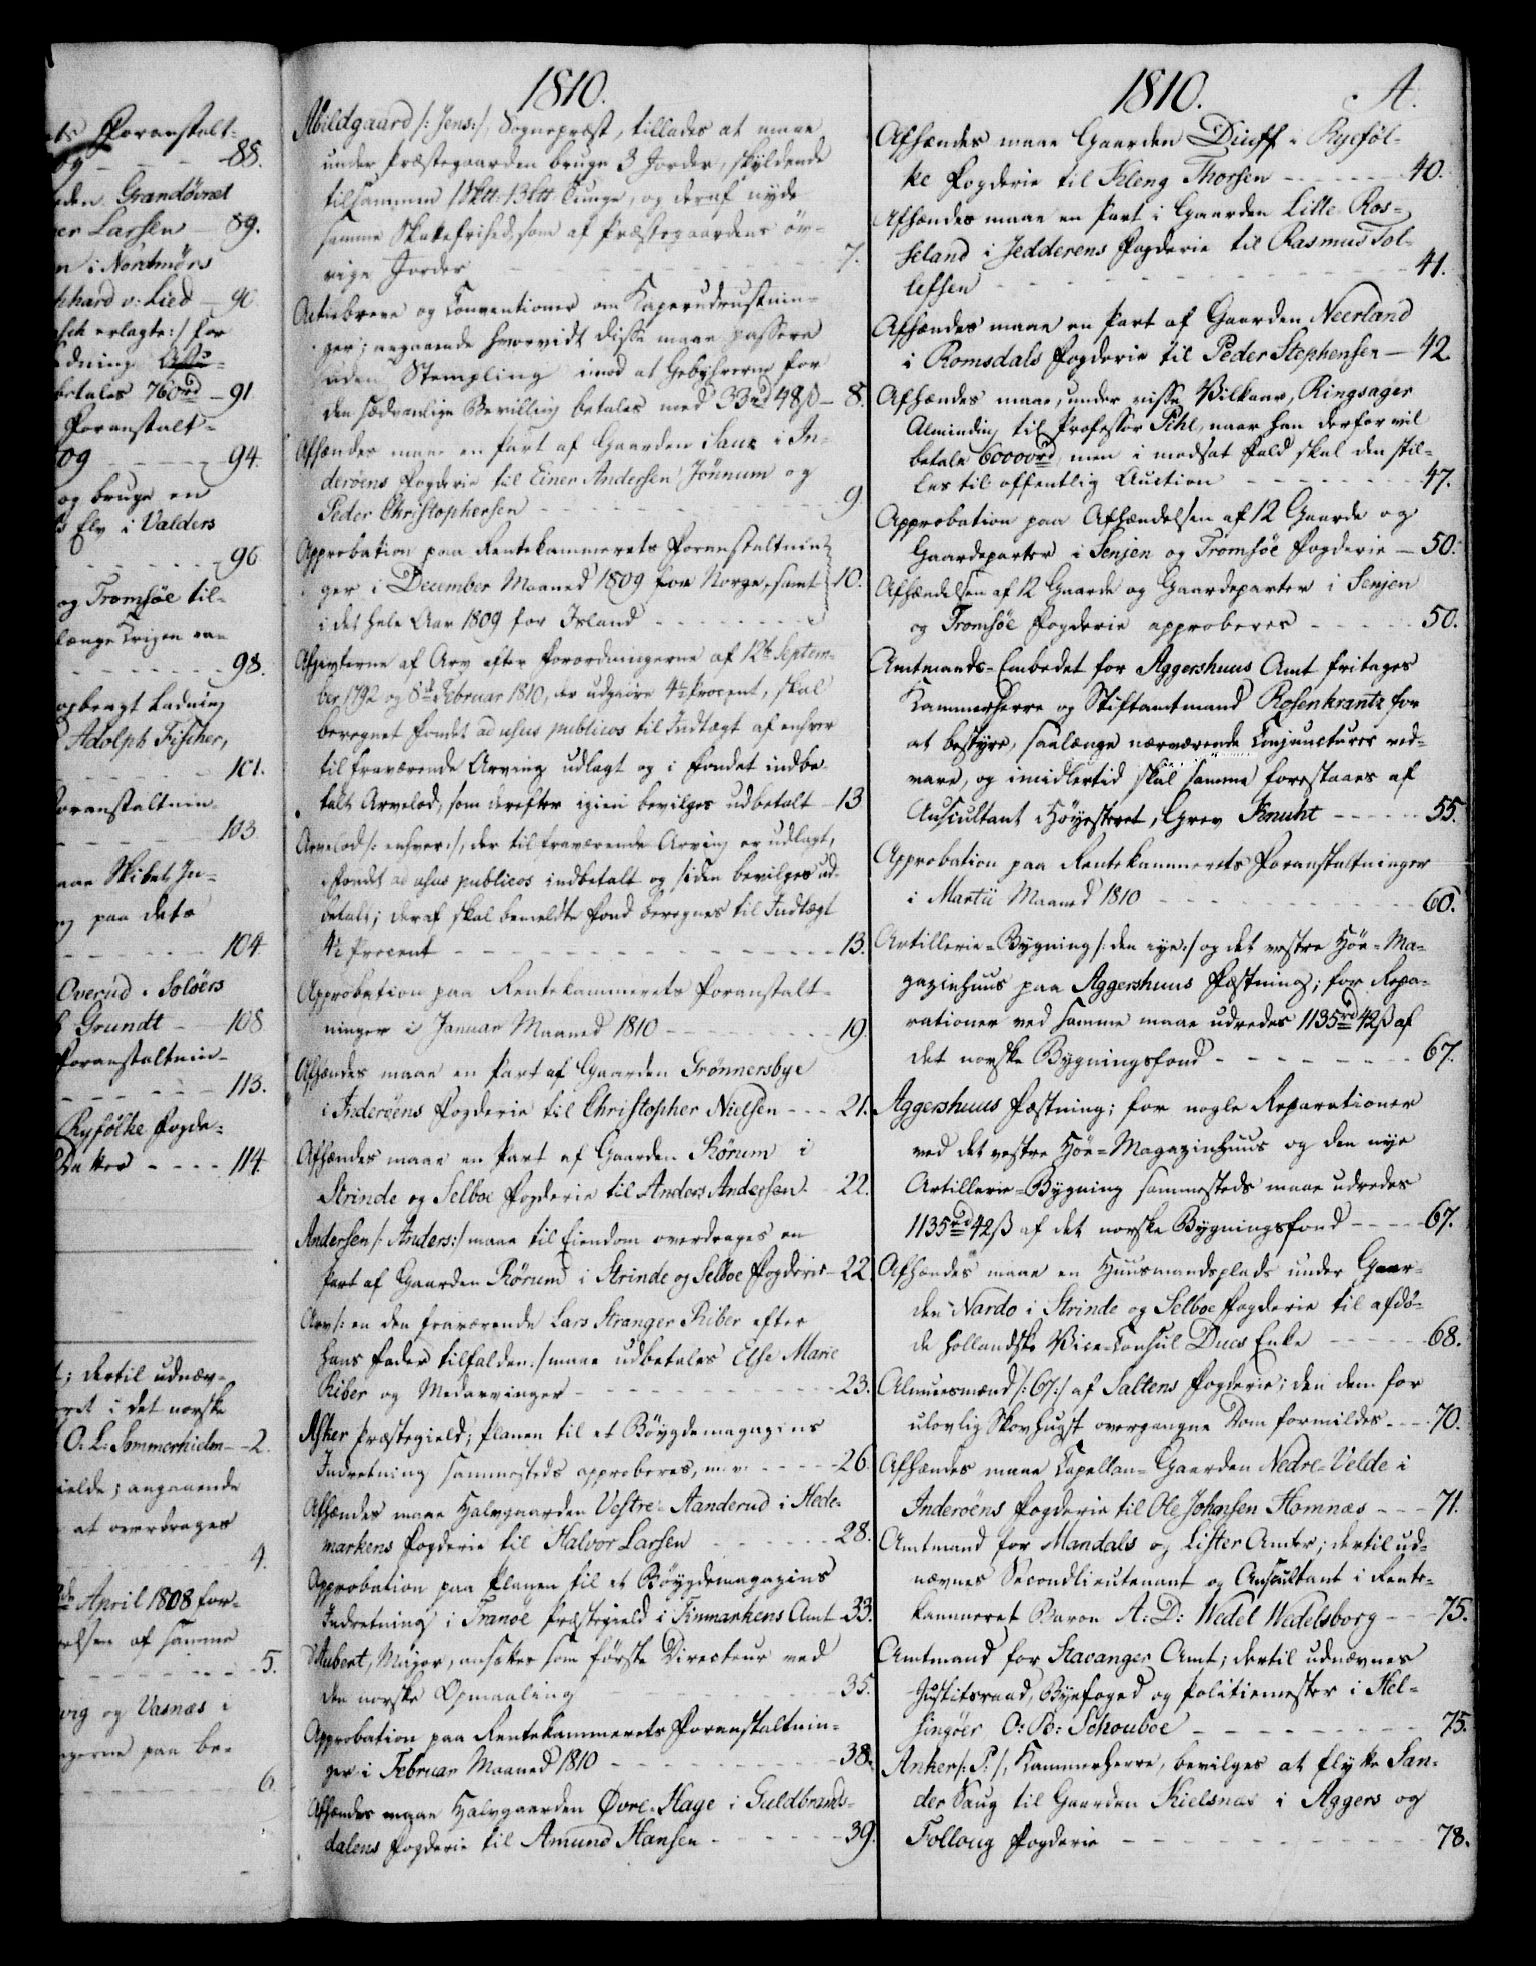 ets Foranstalt-
og - - - 88.
den Grandøvret
er Larsen 89.
n i Nordmørs
phard v: Lied - 90
afsk erlagte:/ for
dning
betales 760rd - 91
Foranstalt-
og - - - 94.
og bruge en
s Elv i Valders
- - - 96
og Tromsøe til-
længe Krigen va-
- - - 98.
opbragt Ladning
Adolph Fischer,
- - - 101.
Foranstaltnin-
- - - 103
aar Skibet In-
paa dets
- - - 104
Overud i Soløers
Grundt - 108
Foranstaltnin-
- - - 113.
Ryfølke Fogde-
Datter - - - 114
; dertil udnæv-
ret i det norske
O: L: Sommerhielm - - 2.
ielde; angaaende
at overdrages
4.
de April 1808 for-
elsen af samme
- - - 5.
vig og Vasnæs i
ngerne paa be-
- - - 6
1810.
Abildgaard /: Jens:/, Sognepræst, tillades at maae
under Præstegaarden bruge 3 Jorder, skyldende
tilsammen 1 Skltt: 13 ltt Tunge, og deraf nyde
samme Skattefrihed, som af Præstegaardens øv-
rige Jorder - - - 7.
Actiebreve og Conventioner om Kaperudrustnin-
ger; angaaende hvorvidt disse maae passere
uden Stempling imod at Gebyhrerne for
den sædvanlige Bevilling betales med 33rd 48ß - 8.
Afhændes maae en Part af Gaarden Saur i In-
derøens Fogderie til Einer Andersen Jönnum og
Peder Christophersen - - - 9
Approbation paa Rentekammerets Foranstaltnin-
ger i December Maaned 1809 for Norge, samt - 10.
i det hele Aar 1809 for Island - - -
Afgivterne af Arv efter Forordningerne af 12te Septem-
ber 1792 og 8de Februar 1810, der udgiøre 4½ Procent, skal
beregnet Fondet ad usus publicos til Indtægt af enhver
til fraværende Arving udlagt og i Fondet indbe-
talt Arvelod, som derefter igien bevilges udbetalt - 13
Arvelod /: enhver:/, der til fraværende Arving er udlagt,
i Fondet ad usus publicos indbetalt og siden bevilges ud-
betalt; deraf skal bemeldte Fond beregnes til Indtægt
4½ Procent - - - 13.
Approbation paa Rentekammerets Foranstalt-
ninger i Januar Maaned 1810 - - - 19.
Afhændes maae en Part af Gaarden Grönnersbye
i Inderøens Fogderie til Christopher Nielsen - - - 21.
Afhændes maae en Part af Gaarden Rørum i
Strinde og Selboe Fogderie til Anders Andersen - 22.
Andersen /: Anders:/ maae til Eiendom overdrages en
Part af Gaarden Rørum i Strinde og Selboe Fogderie - 22
Arv /: en den fraværende Lars Stranger Riber efter
hans Fader tilfalden:/ maae udbetales Else Marie
Riber og Medarvinger - - - 23.
Asker Præstegield; Planen til et Böygdemagazins
Indretning sammesteds approberes, m: v: - - - 26
Afhændes maae Halvgaarden Vestre-Aanderud i Hede-
markens Fogderie til Halvor Larsen - - - 28.
Approbation paa Planen til et Böygdemagazins
Indretning i Tranöe Præstegield i Finmarkens Amt - 33.
d'Aubert, Major, ansættes som første Directeur ved
den norske Opmaaling - - - 35.
Approbation paa Rentekammerets Foranstaltnin-
ger i Februar Maaned 1810 - - - 38.
Afhændes maae Halvgaarden Øvre-Hage i Guldbrands-
dalens Fogderie til Amund Hansen - - - 39.
1810. A.
Afhændes maae Gaarden Diuff i Ryeføl-
ke Fogderie til Kleng Thorsen - - - 40.
Afhændes maae en Part i Gaarden Lille-Ros-
seland i Jedderens Fogderie til Rasmus Tol-
lefsen - - - 41.
Afhændes maae en Part af Gaarden Neerland
i Romsdals Fogderie til Peder Stephensen - 42
Afhændes maae, under visse Vilkaar, Ringsager
Alminding til Professor Pihl, naar han derfor vil
betale 60000rd, men i modsat Fald skal den stil-
les til offentlig Auction - - - 47.
Approbation paa Afhændelsen af 12 Gaarde og
Gaardeparter i Senjen og Tromsøe Fogderie - 50.
Afhændelsen af 12 Gaarde og Gaardeparter i Senjen
og Tromsøe Fogderie approberes - - - 50.
Amtmands-Embedet for Aggershuus Amt fritages
Kammerherre og Stiftamtmand Rosenkrantz for
at bestyre, saalænge nærværende Conjuncturer ved-
vare, og imidlertid skal samme forestaaes af
Auscultant i Høyesteret, Grev Knuht - - - 55.
Approbation paa Rentekammerets Foranstaltninger
i Martii Maaned 1810 - - - 60.
Artillerie-Bygning /: den nye:/ og det vestre Höe-Ma-
gazinhuus paa Aggershuus Fæstning; for Repa-
rationer ved samme maae udredes 1135rd 42ß af
det norske Bygningsfond - - - 67.
Aggershuus Fæstning; for nogle Reparationer
ved det vestre Höe-Magazinhuus og den nye
Artillerie-Bygning sammesteds maae udredes
1135rd 42ß af det norske Bygningsfond - - - 67.
Afhændes maae en Huusmandsplads under Gaar-
den Nardo i Strinde og Selboe Fogderie til afdö-
de hollandske Vice-Consul Ducs Enke - - - 68.
Almuesmænd /: 67:/ af Saltens Fogderie; den dem for
ulovlig Skovhugst overgangne Dom formildes - - - 70.
Afhændes maae Capellan-Gaarden Nedre-Velde i
Inderøens Fogderie til Ole Johnsen Homnæs - - - 71.
Amtmand for Mandals og Lister Amter; dertil ud-
nævnes Secondlieutenant og Auscultant i Rente-
kammeret Baron A: D: Wedel Wedelsborg - - - 75.
Amtmand for Stavanger Amt; dertil udnævnes
Justitsraad, Byefoged og Politiemester i Hel-
singöer O: B: Schouboe - - - 75.
Anker /: P:/, Kammerherre, bevilges at flytte San-
der Saug til Gaarden Kielsnæs i Aggers og
Folloug Fogderie - - - 78.